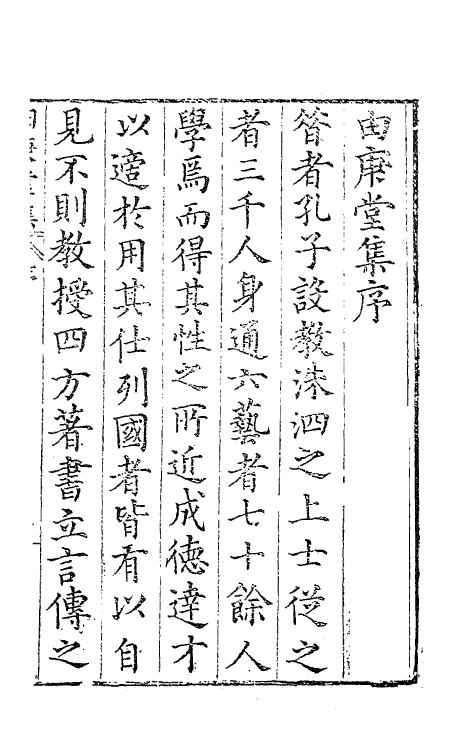 由庚堂集序
昝者孔子設教洙泗之上士從之
者三千人身通六藝者七十餘人
學焉而得其性之所近成德達才
以適於用其仕列國者皆有以自
見不則教授四方著書立言傳之